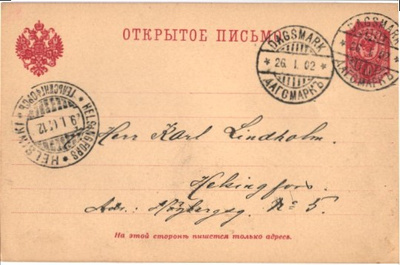 ОТКРЫТОЕ ПИСЬМО
DAGSMARK
26.I.02
ДАГСМАРКЪ
DAGSMARK
HELSINGFORS
HELSINKI
Herr Karl Lindholm.
Helsingfors.
Adr: Högbergsg. No 5.
На этой сторонѣ пишется только адресъ.